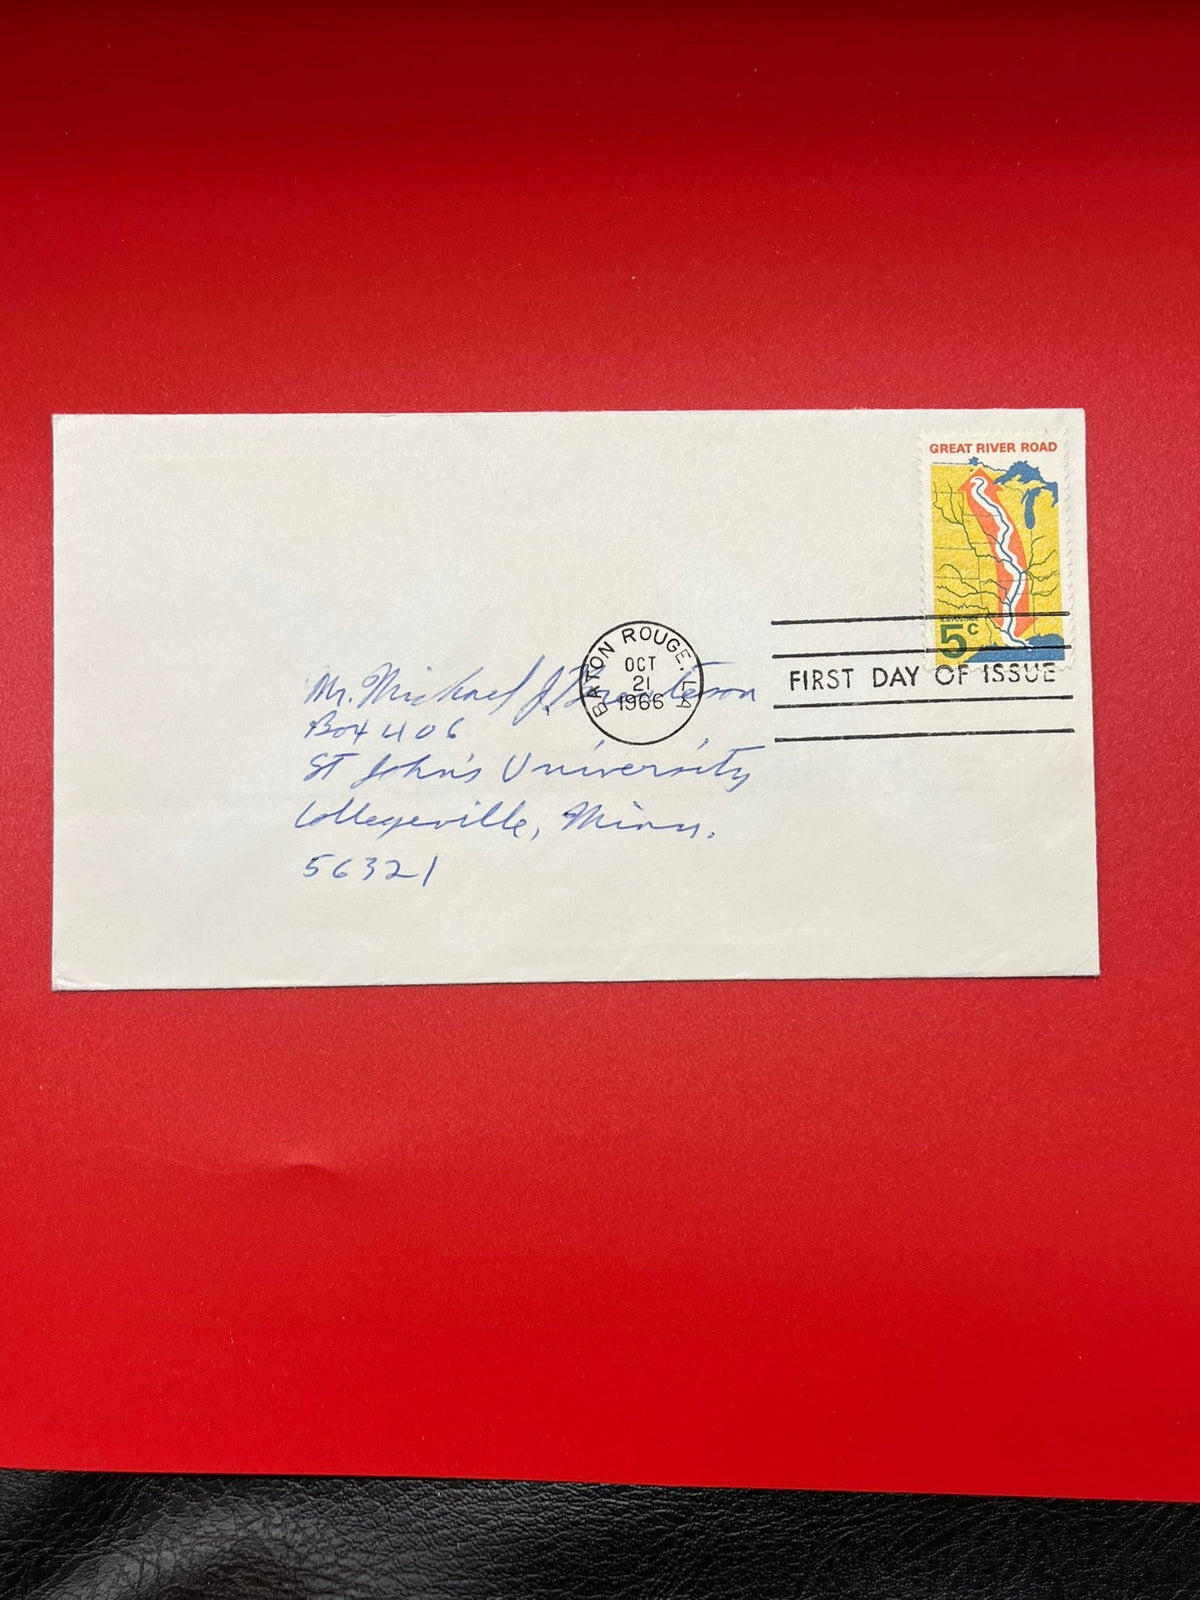 GREAT RIVER ROAD
5c
BATON ROUGE, LA
OCT
21
1966
FIRST DAY OF ISSUE
Mr. Michael J.
Box 406
St John's University
Collegeville, Minn.
56321